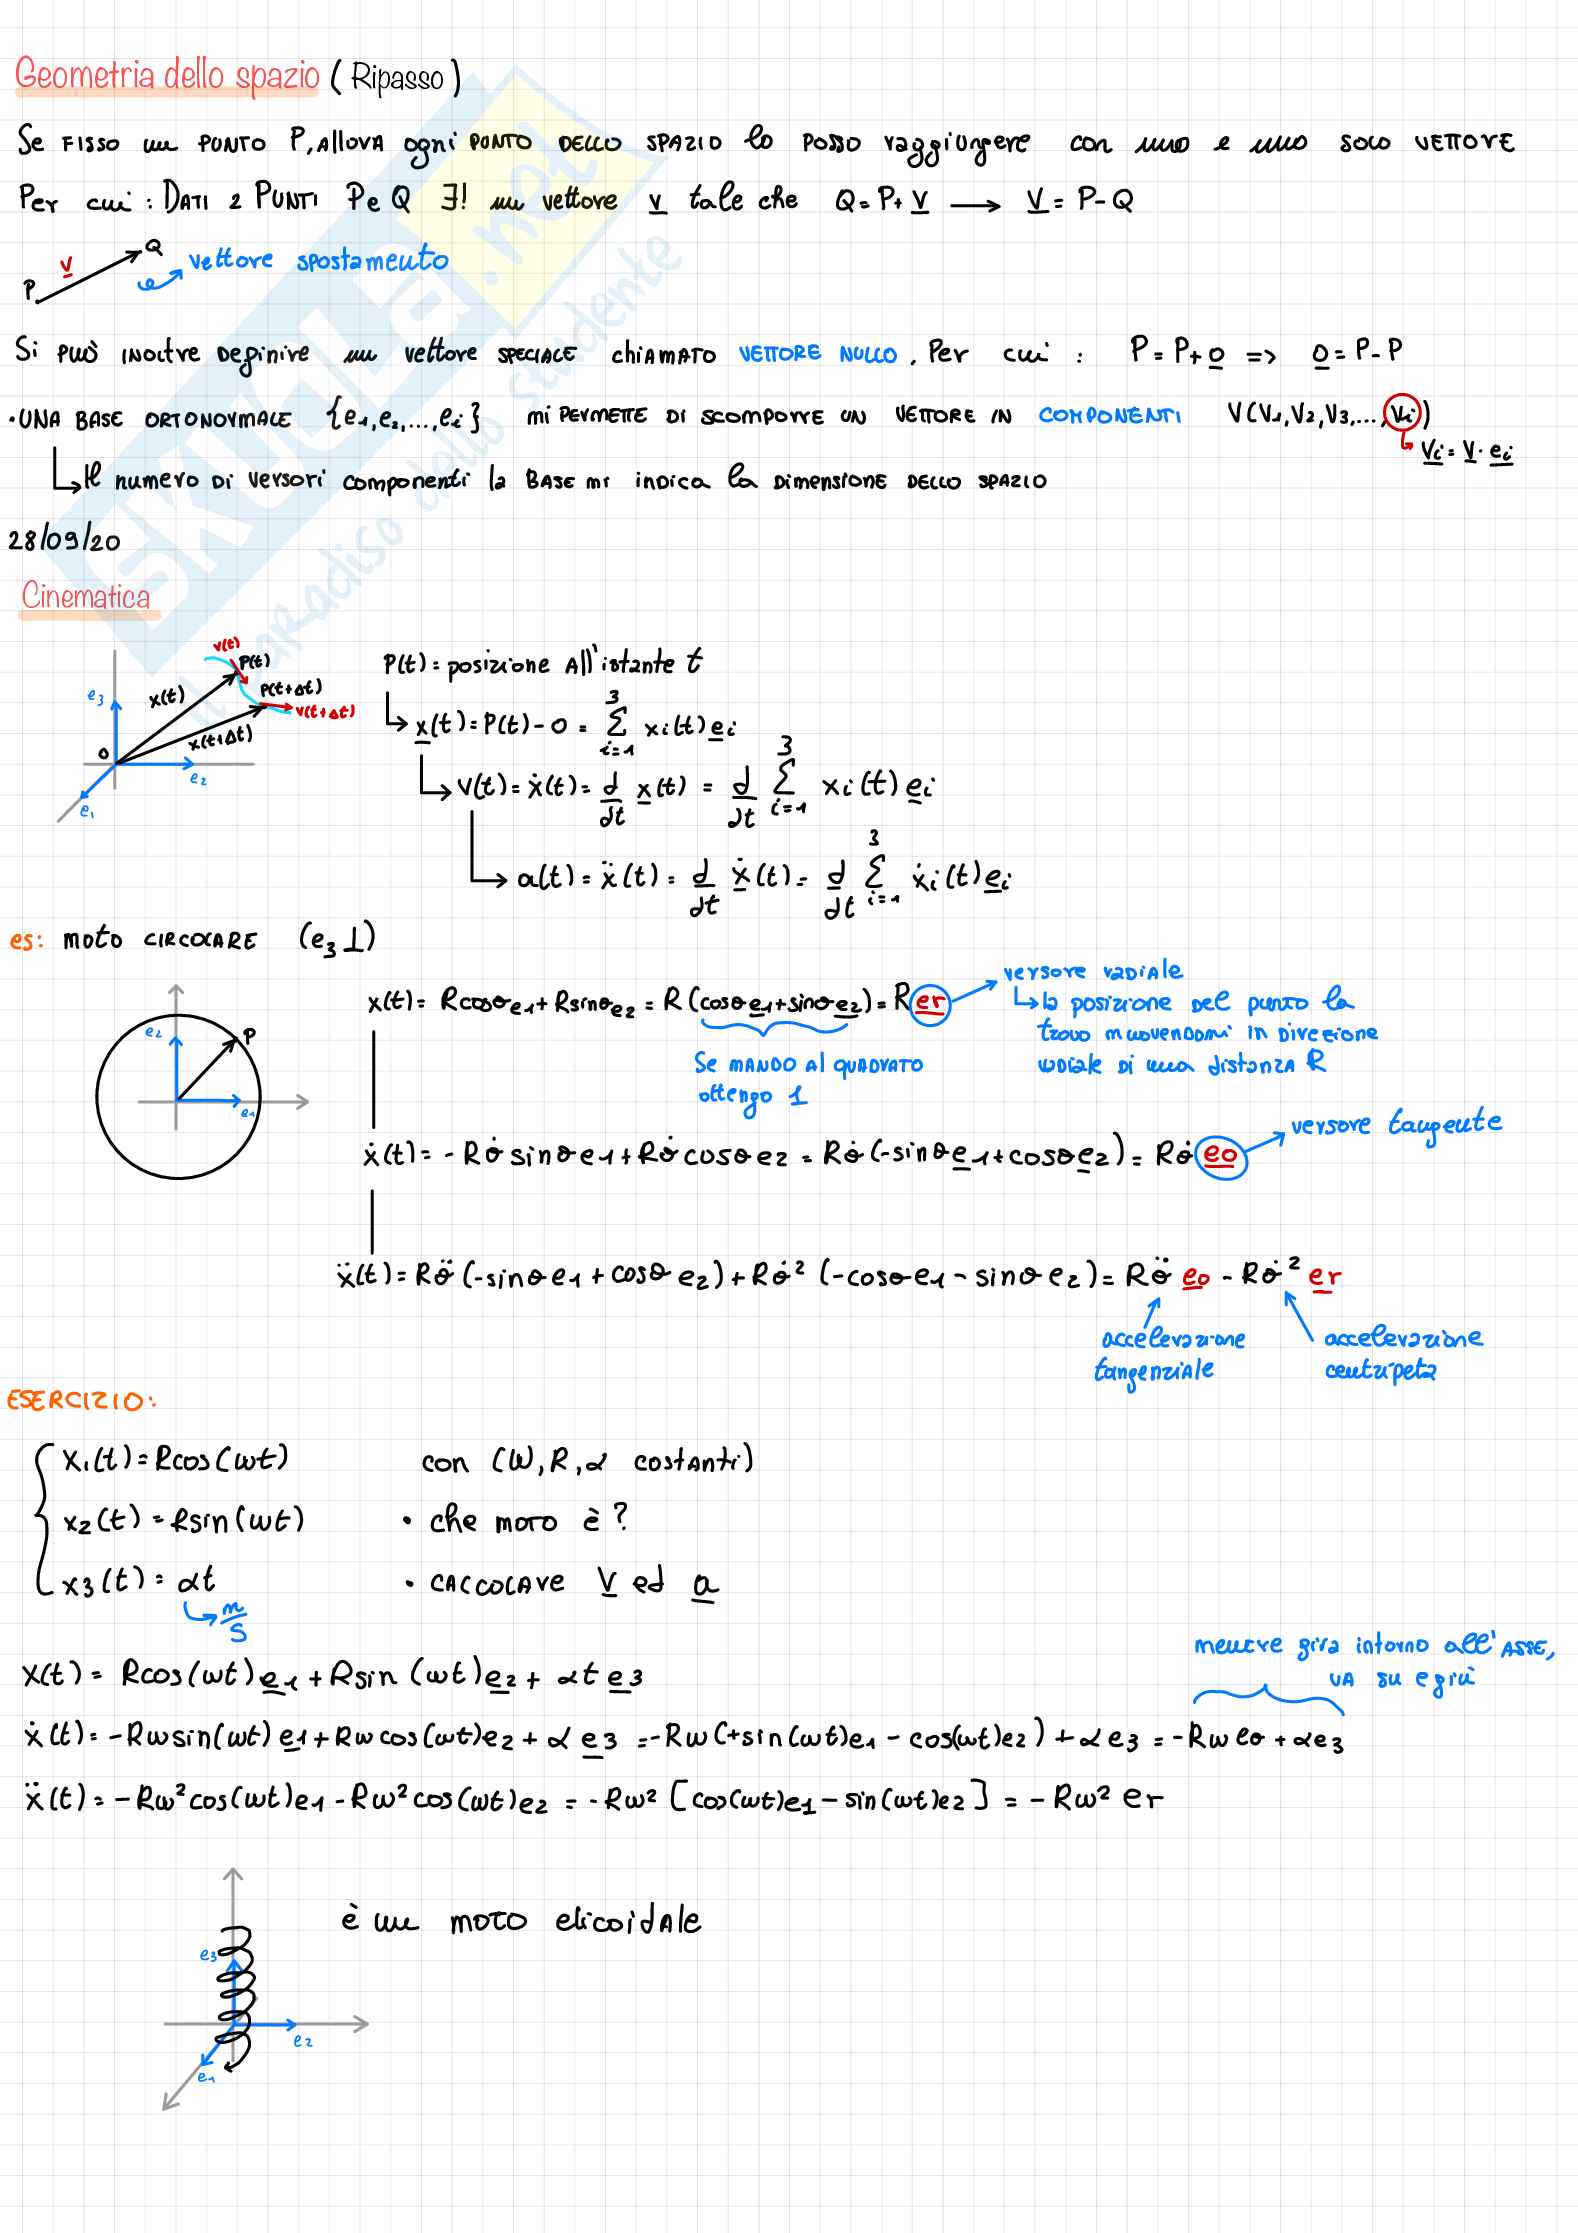 Geometria dello spazio (Ripasso)
Se FISSO un PUNTO P, AllorA ogni PUNTO DELLO SPAZIO lo POSSO raggiungere con uno e uno SOLO VETTORE
Per cui: DATI 2 PUNTI P e Q ∃! un vettore v tale che Q=P+v → v=P-Q
P v Q vettore spostamento
Si può INOLTRE DEFINIRE un vettore SPECIALE chiAMATO VETTORE NULLO. Per cui: P=P+0 => 0=P-P
•UNA BASE ORTONORMALE {e1,e2,...,ei} mi PERMETTE DI SCOMPORRE UN VETTORE IN COMPONENTI V(V1,V2,V3,...,Vi)
Vi=V·ei
Il numero DI versori componenti la BASE mi INDICA la DIMENSIONE DELLO SPAZIO
28/09/20
Cinematica
v(t)
P(t)
P(t+Δt)
v(t+Δt)
e3
x(t)
x(t+Δt)
O
e2
e1
P(t)= posizione All'istante t
x(t)=P(t)-O = Σ_{i=1}^{3} xi(t)ei
v(t)=ẋ(t)= d/dt x(t) = d/dt Σ_{i=1}^{3} xi(t)ei
a(t)=ẍ(t)= d/dt ẋ(t)= d/dt Σ_{i=1}^{3} ẋi(t)ei
es: moto CIRCOLARE (e3⊥)
e2
P
e1
x(t)= Rcosθe1+Rsinθe2 = R(cosθe1+sinθe2)=Rer
versore radiale
la posizione DEL punto la
trovo muovendomi in Direzione
radiale DI una distanza R
Se MANDO Al QUADRATO
ottengo 1
ẋ(t)= -Rθ̇sinθe1+Rθ̇cosθe2 = Rθ̇(-sinθe1+cosθe2)= Rθ̇eθ
versore tangente
ẍ(t)=Rθ̈(-sinθe1+cosθe2)+Rθ̇²(-cosθe1-sinθe2)=Rθ̈eθ-Rθ̇²er
accelerazione
tangenziale
accelerazione
centripeta
ESERCIZIO:
x1(t)=Rcos(ωt) con (W,R,α costAnti)
x2(t)=Rsin(ωt) • che moto è?
x3(t)=αt • CALCOLARE V ed a
m/s
x(t)= Rcos(ωt)e1+Rsin(ωt)e2+αte3
mentre gira intorno all'ASSE,
VA su e giù
ẋ(t)=-Rωsin(ωt)e1+Rωcos(ωt)e2+αe3=-Rω(+sin(ωt)e1-cos(ωt)e2)+αe3=-Rωeθ+αe3
ẍ(t)=-Rω²cos(ωt)e1-Rω²cos(ωt)e2=-Rω²[cos(ωt)e1-sin(ωt)e2]=-Rω²er
è un moto elicoidale
e3
e2
e1
SKUOLA.net
il paradiso dello studente